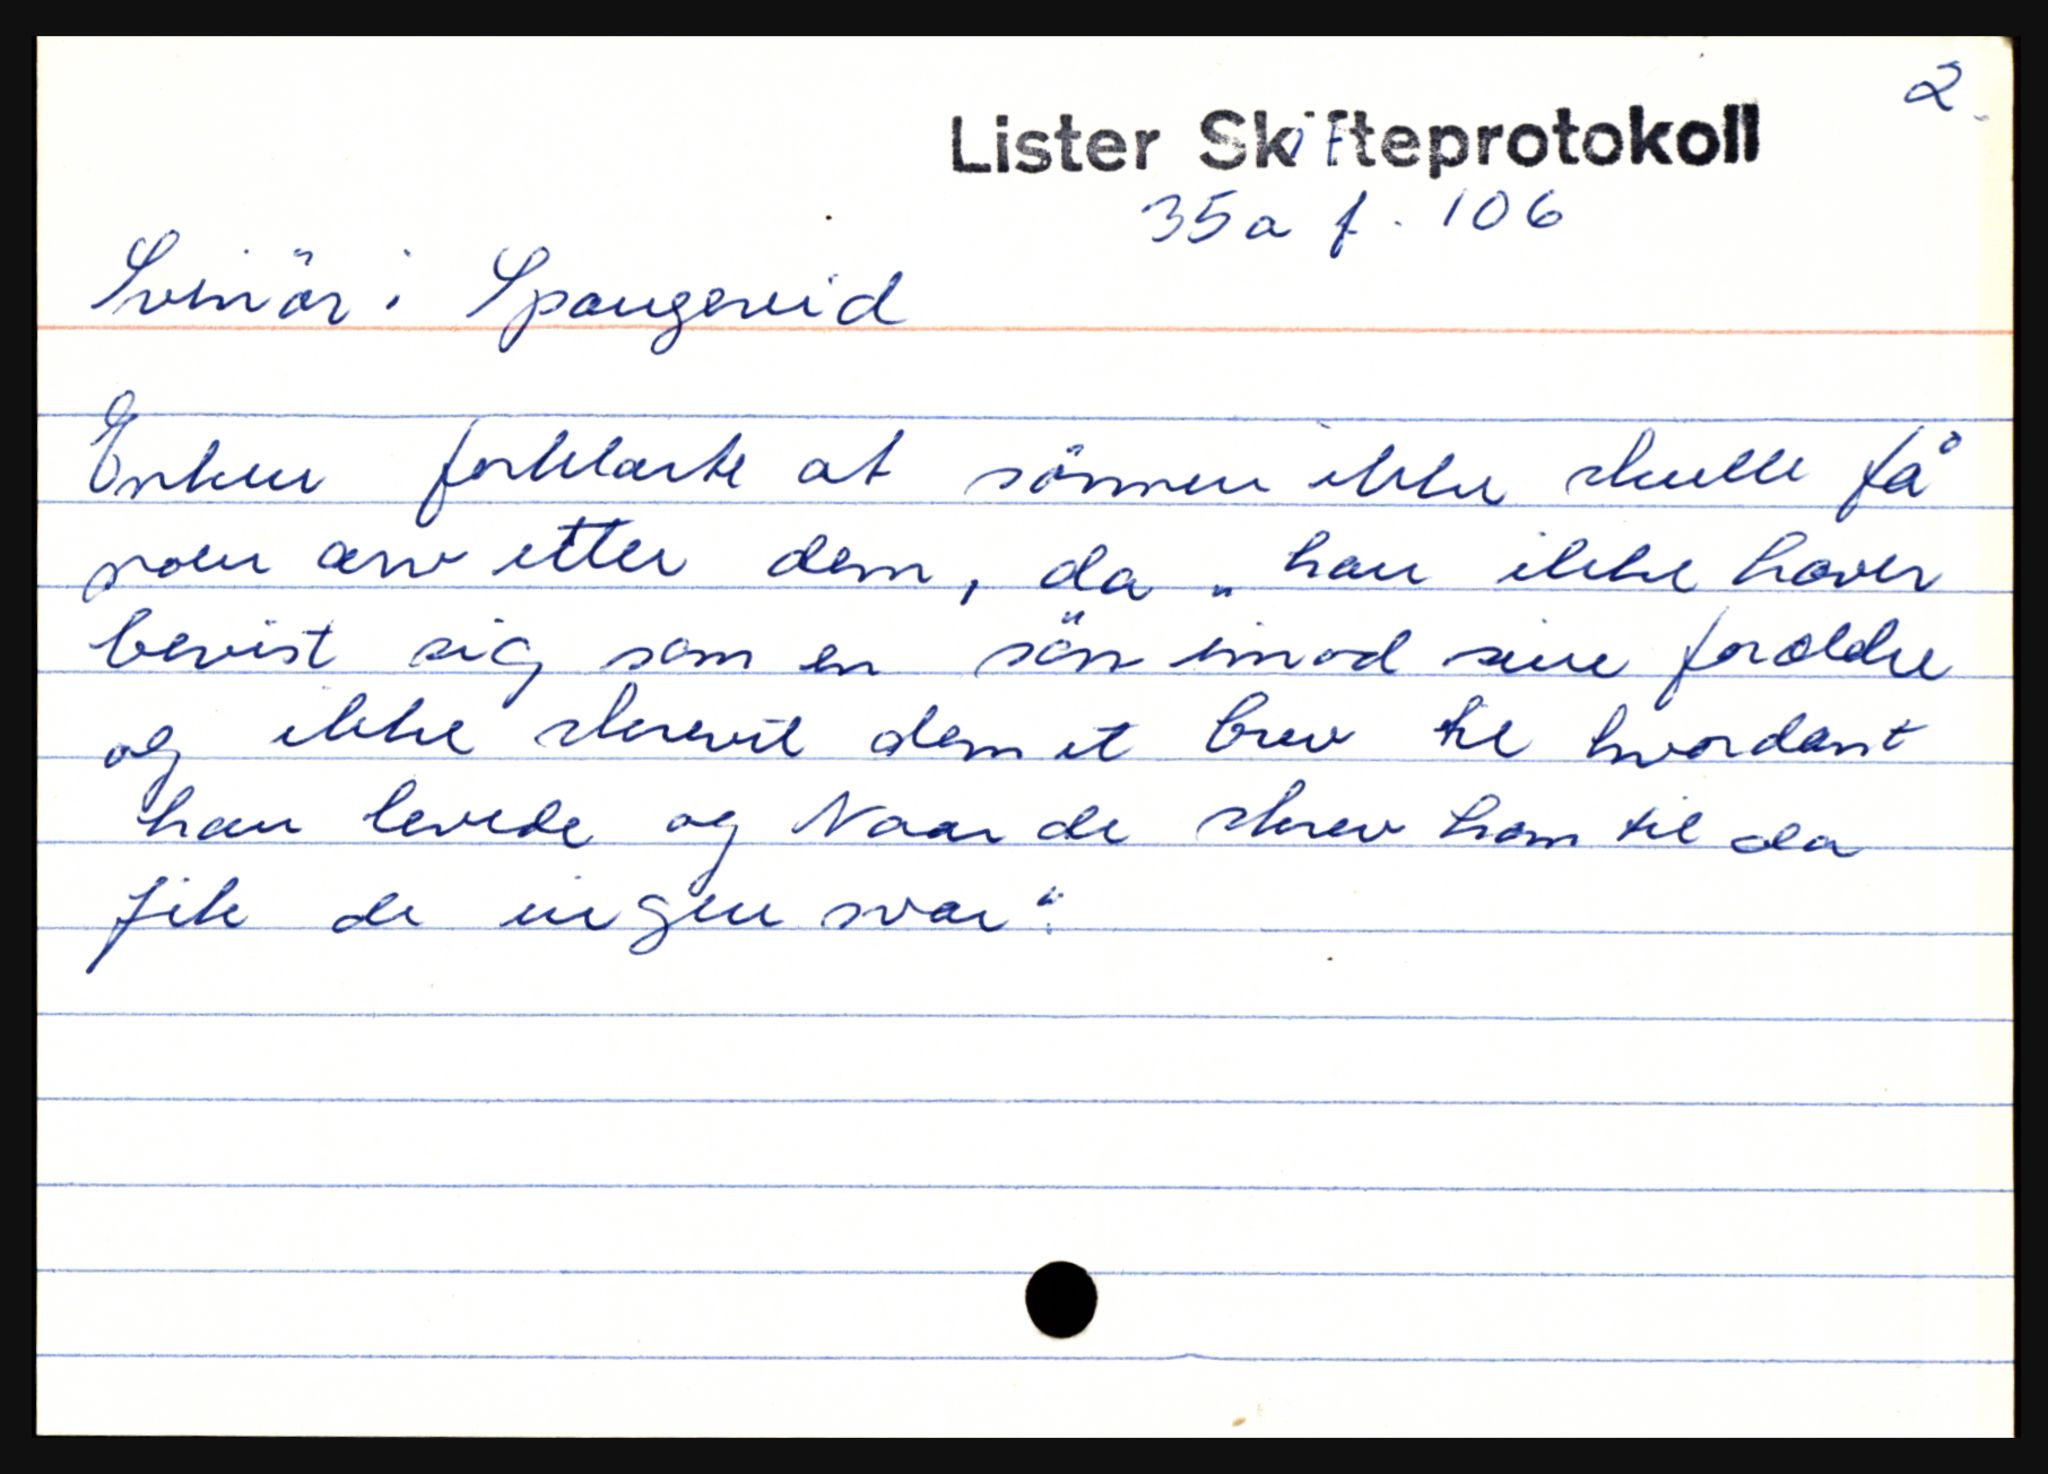 2.
Lister Skifteprotokoll
35a f. 106
Svinör i Spangereid
Enken forklarte at sönnen ikke skulle få
noen arv etter dem, da "han ikke haver
bevist sig som en sön imod sine forældre
og ikke skrevit dem et brev til hvordant
han levede og Naar de skrev ham til da
fik de ingen svar".